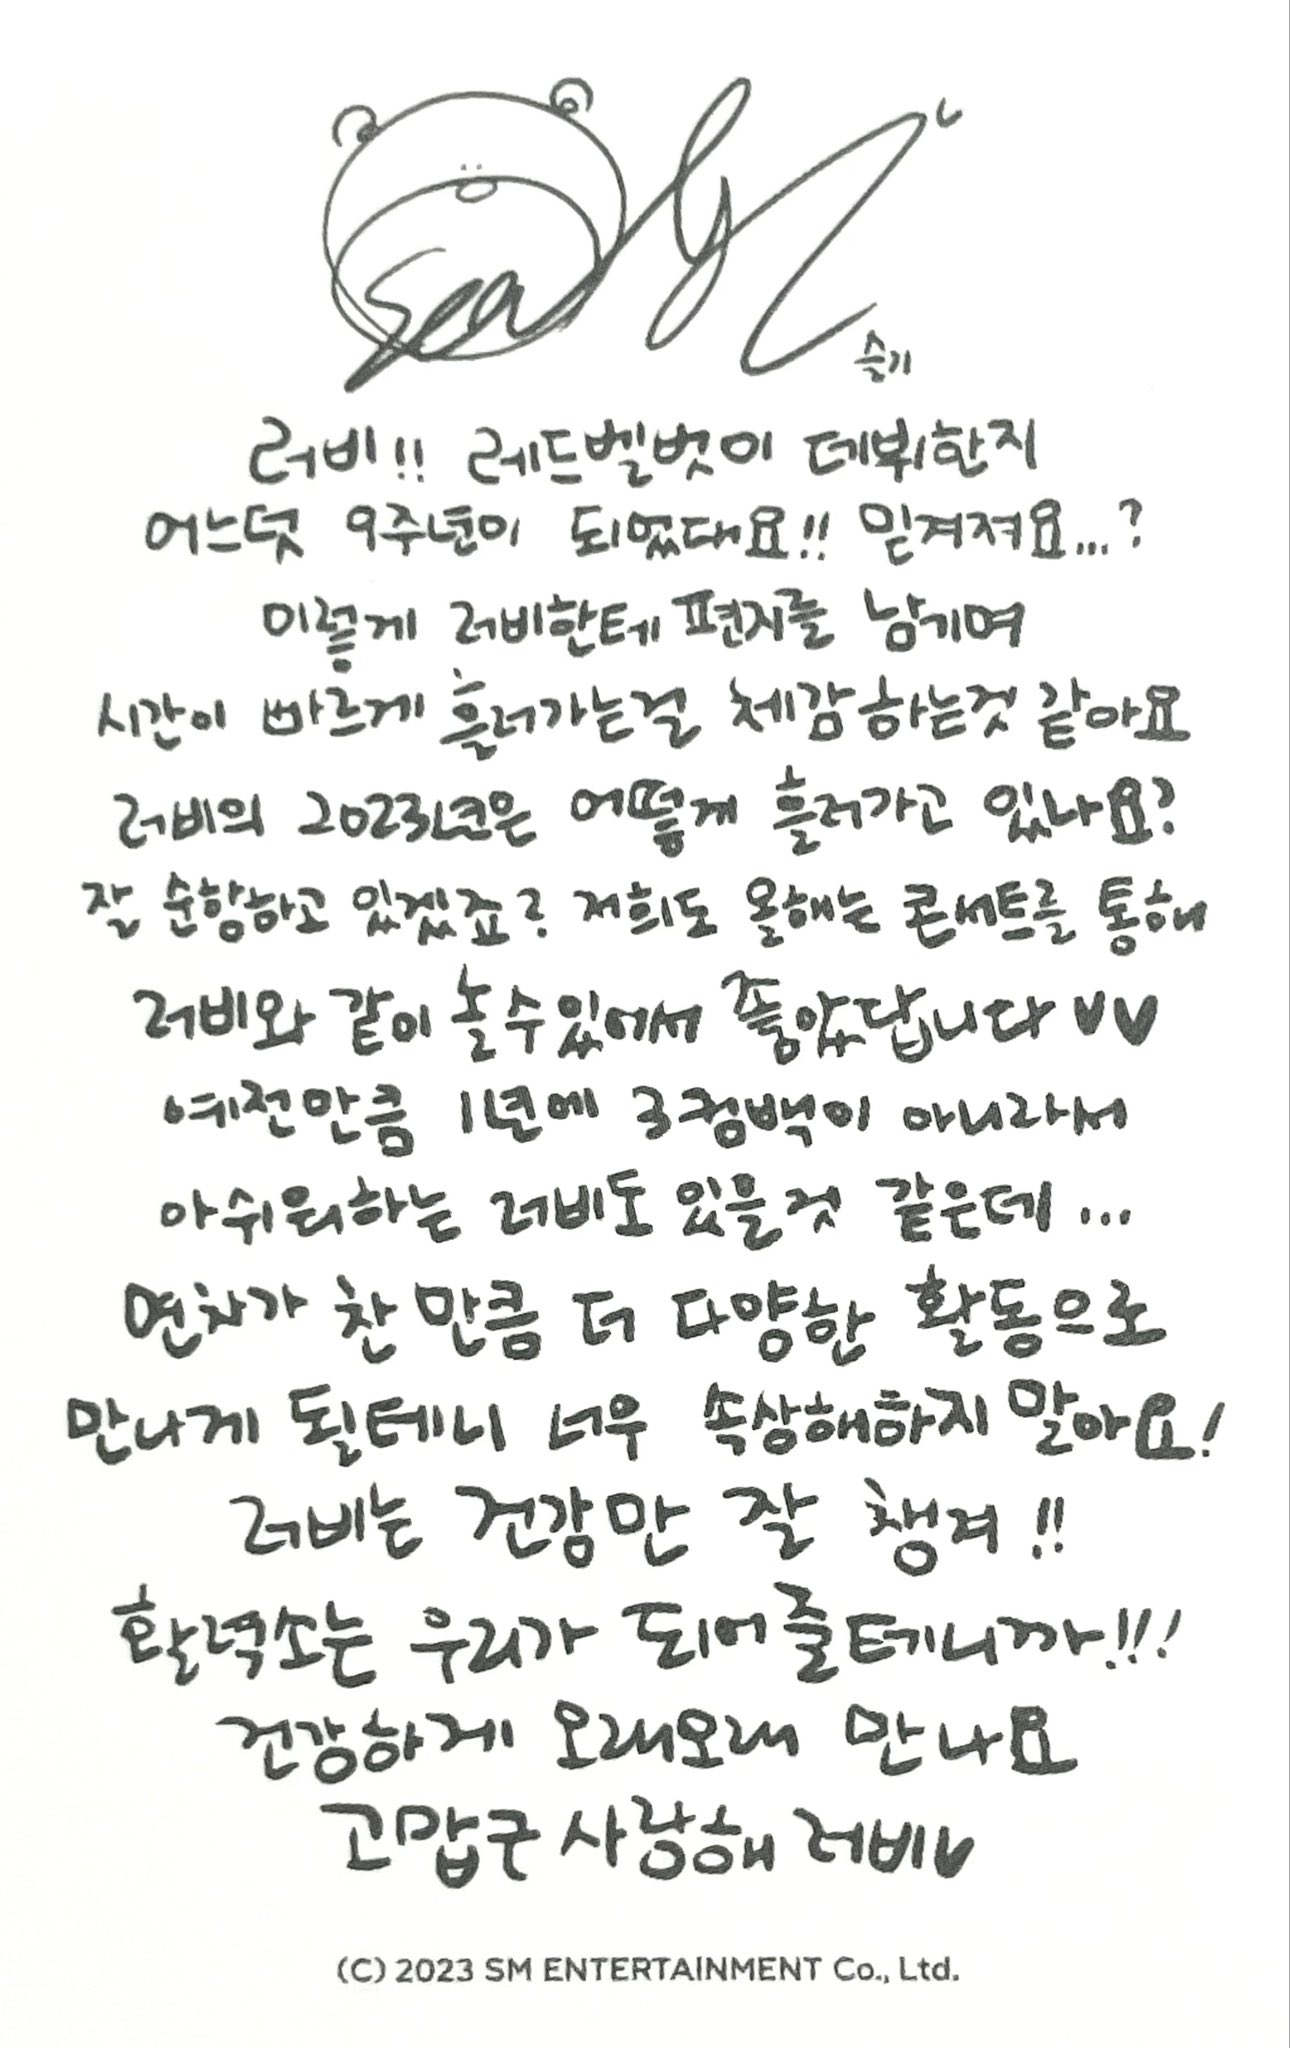 Seulgi
슬기
러비!! 레드벨벳이 데뷔한지
어느덧 9주년이 되었대요!! 믿겨져요...?
이렇게 러비한테 편지를 남기며
시간이 빠르게 흘러가는걸 체감하는것 같아요
러비의 2023년은 어떻게 흘러가고 있나요?
잘 순항하고 있겠죠? 저희도 올해는 콘서트를 통해
러비와 같이 놀 수 있어서 좋았답니다 ♥♥
예전만큼 1년에 3컴백이 아니라서
아쉬워하는 러비도 있을것 같은데...
연차가 찬 만큼 더 다양한 활동으로
만나게 될테니 너무 속상해하지 말아요!
러비는 건강만 잘 챙겨!!
활력소는 우리가 되어줄테니까!!!
건강하게 오래오래 만나요
고맙구 사랑해 러비♥
(C) 2023 SM ENTERTAINMENT Co., Ltd.